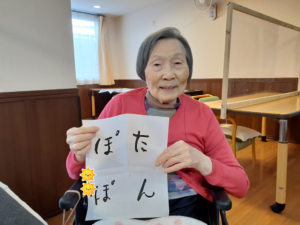 たん
ぽぽ